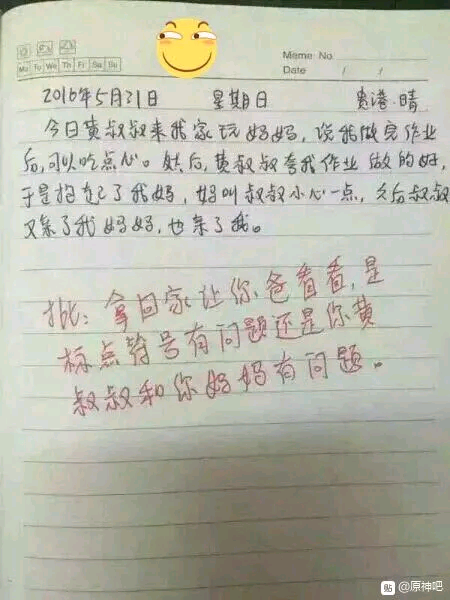 Meme No.
Mo Tu We Th Fr Sa Su
Date / /
2016年5月31日 星期日 贵港·晴
今日黄叔叔来我家玩妈妈，说我做完作业
后，可以吃点心。然后，黄叔叔夸我作业做的好，
于是抱起了我妈，妈叫叔叔小心一点，久后叔叔
又亲了我妈妈，也亲了我。
批：拿回家让你爸看看，是
标点符号有问题还是你黄
叔叔和你妈妈有问题。
贴 @原神吧